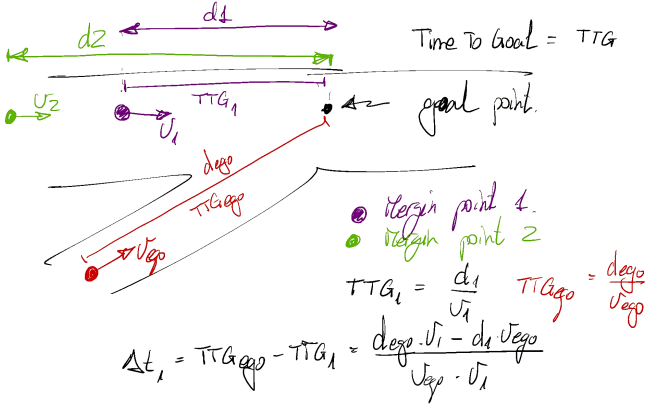 d1
d2
Time To Goal = TTG
TTG₁
goal point.
v2
v₁
dego
TTGego
vego
Mergin point 1.
Mergin point 2
TTG₁ = d₁/v₁
TTGego = dego/vego
Δt₁ = TTGego - TTG₁ = (dego·v₁ - d₁·vego)/(vego·v₁)